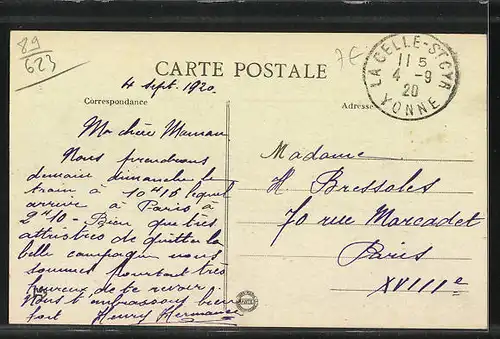 89
623
7€
CARTE POSTALE
LA CELLE-ST CYR
11 5
4 -9
20
YONNE
4 Sept. 1920.
Correspondance
Adresse
Ma chère Maman
Nous prendrons
demain dimanche le
train à 10H16 lequel
arrive à Paris à
2H10 - Bien que très
attristées de quitter la
belle campagne nous
sommes pourtant très
heureux de te revoir.
Nous t'embrassons bien
fort Henry Hermance
Madame
H. Bressoles
70 rue Marcadet
Paris
XVIIIe